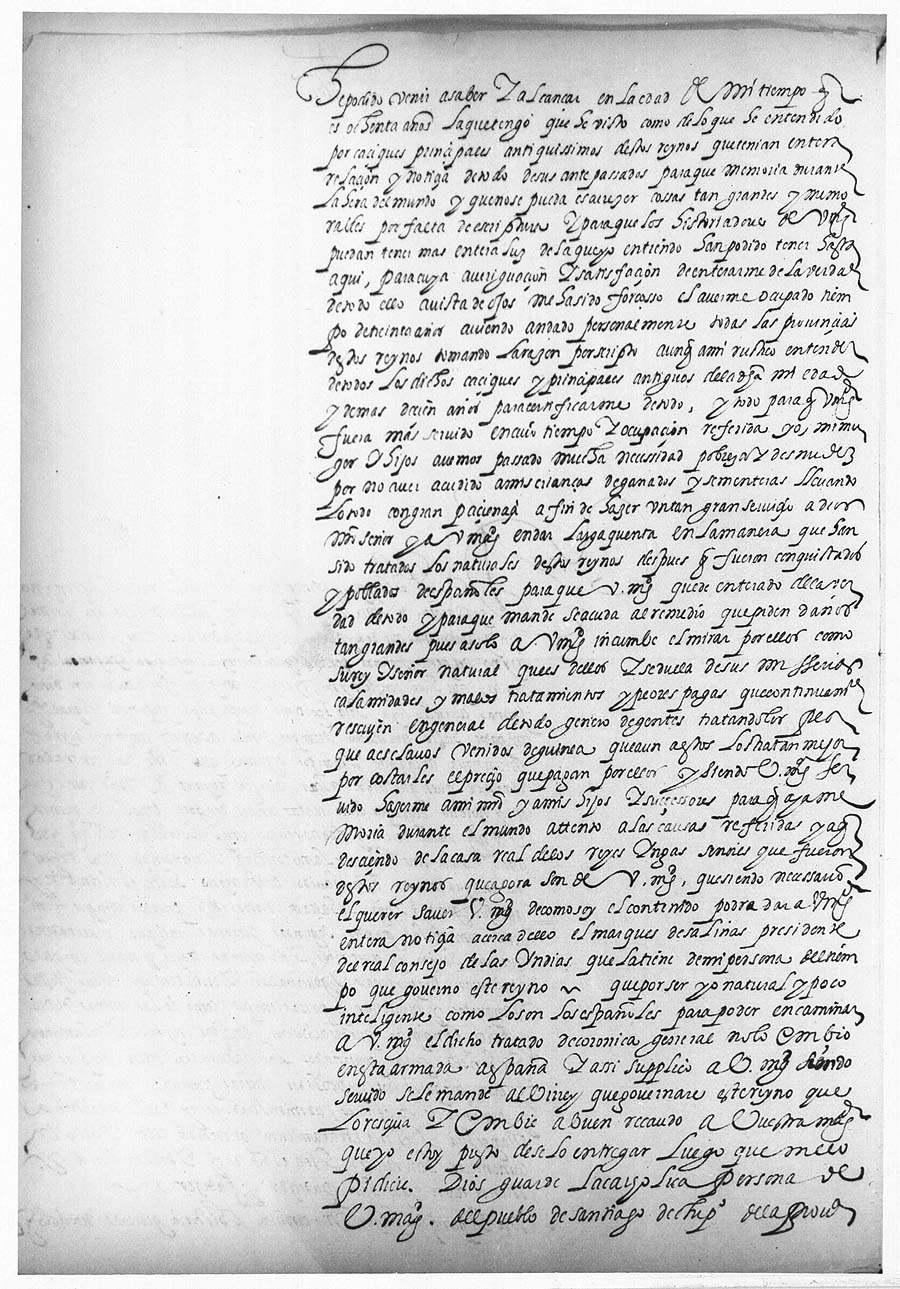 he podido venir a saber y alcancar en la edad de mi tiempo q
es ochenta años la que tengo que he visto como de lo que he entendido
por caciques principales antiquissimos destos reynos que tenian entera
relaçion y notiçia de todo de sus antepassados para que memoria durante
la hera del mundo y que no se pueda escureçer cossas tan grandes y memo
rables por falta de escriptura y para que los historiadores de V mg
puedan tener mas entera luz de la que yo entiendo han podido tener hasta
aqui, para cuya averiguaçion y satisfaçion de enterarme de la verdad
de todo ello a vista de ojos me ha sido forçosso el averme ocupado tiem
po de treinta años aviendo andado personalmente todas las provinçias
destos reynos tomando la razon por scripto aunq a mi rustico entender
de todos los dichos caciques y principales antiguos de la dha mi edad
y de mas de cien años para certificarme de todo, y todo para q V mg
fuera más servido en cuio tiempo y ocupaçion referida yo y mi mu
ger y hijos avemos passado mucha necessidad pobreza y desnudez
por no aver acudido a mis crianças de ganados y sementeras llevando
lo todo con gran paçiençia a fin de hazer un tan gran serviçio a dios
nro señor y a V mg en dar larga quenta en la manera que han
sido tratados los naturales destos reynos despues q fueron conquistados
y poblados de españoles para que V. mg quede enterado de la ver
dad de todo y para que mande se acuda al remedio que piden daños
tan grandes pues a solo a V mg incumbe el mirar por ellos como
su rey y señor natural que es dellos y se duela de sus misserias
calamidades y malos tratamientos y peores pagas que continuamte
resciven en general de todo genero de gentes tratandoles peor
que a esclavos venidos de guinea que aun a estos los tratan mejor
por costarles el preçio que pagan por ellos y siendo V. mg ser
vido hazerme a mi md y a mis hijos y successores para q aya me
moria durante el mundo attento a las causas referidas y a q
desciendo de la casa real de los reyes yngas señores que fueron
destos reynos que agora son de V. mg, que siendo necessario
el querer saver V. mg de como soy el contenido podra dar a V mg
entera notiçia acerca dello el marques de salinas presidente
del real consejo de las yndias que la tiene de mi persona del tiem
po que governo este reyno que por ser yo natural y poco
inteligente como lo son los españoles para poder encaminar
a V. mg el dicho tratado de coronica general no lo embio
en esta armada a españa y asi supplico a V. mg siendo
servido se le mande al Virrey que governare este reyno que
lo resçiva y embie a buen recaudo a Vuestra mag
que yo estoy presto de se lo entregar luego que me lo
pidiere. Dios guarde la catolica persona de
V. mag. del pueblo de santiago de chipo de la provi